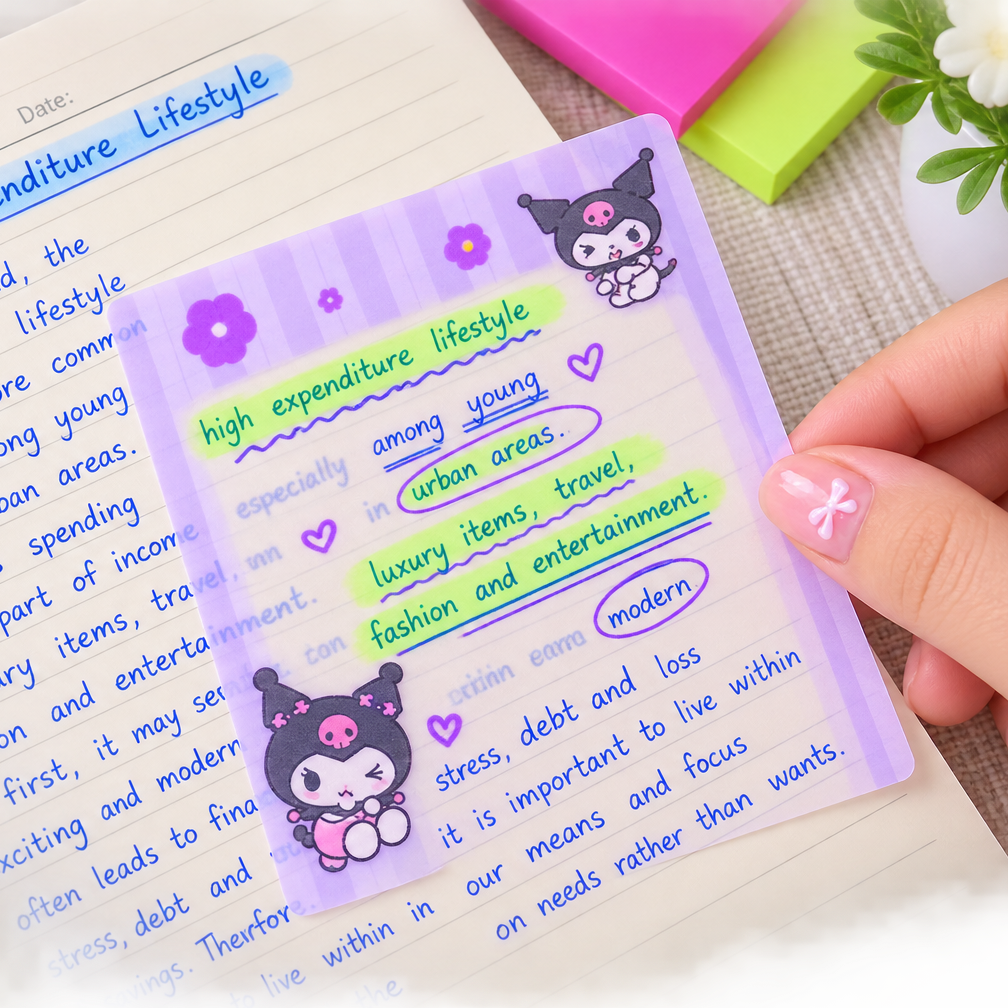 Date:
enditure Lifestyle
d, the
lifestyle
ore common
ong young
ban areas.
spending
part of income
ury items, travel,
on and entertainment.
first, it may
exciting and modern
often leads to fina
stress, debt and
vings. Therrfore.
to live within in
the
high expenditure lifestyle
especially among young
in urban areas..
luxury items, travel,
fashion and entertainment.
modern
stress, debt and loss
it is important to live within
our means and focus
on needs rather than wants.